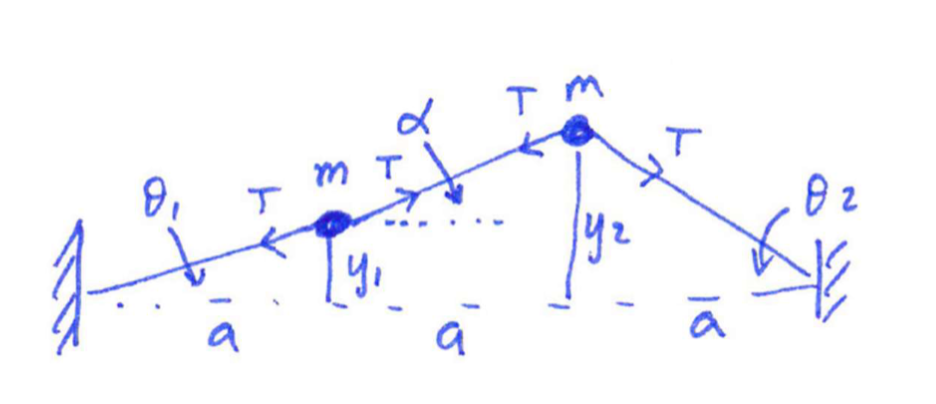 T m
α
T
T
m
θ₁
T
θ₂
y₁
y₂
a
a
a